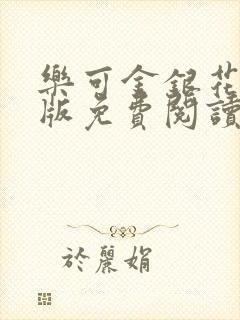 樂可金銀花
版免費閱讀
於麗娟